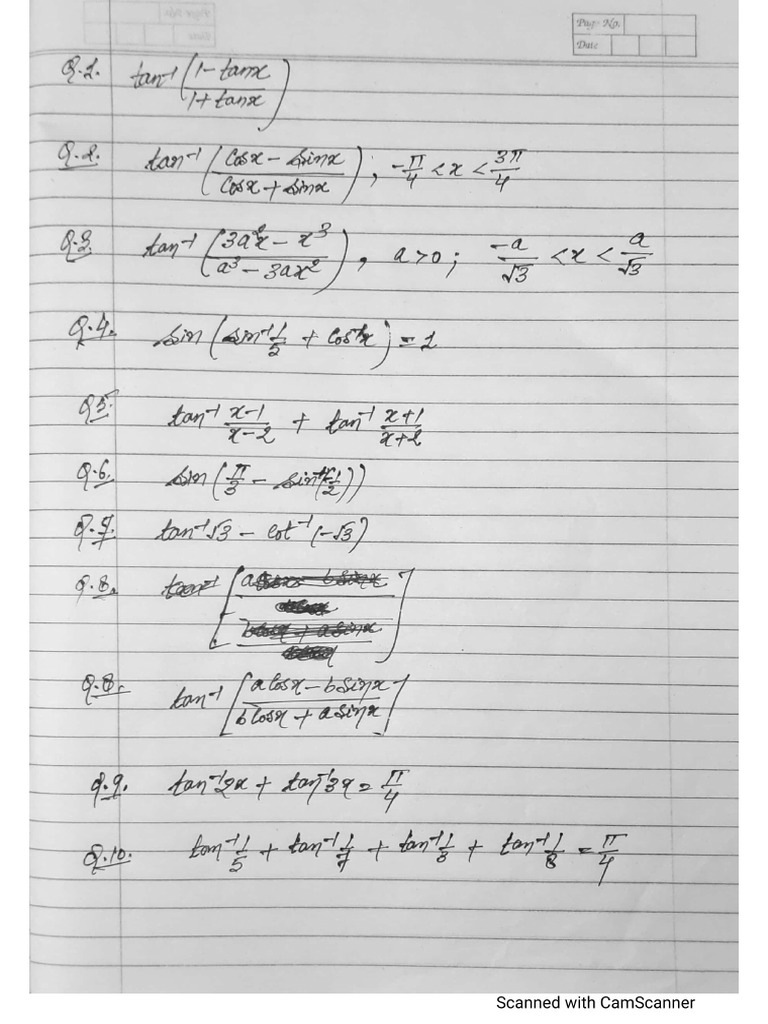 Page No.
Date
Q.1. tan⁻¹((1 - tanx)/(1 + tanx))
Q.2. tan⁻¹((Cosx - Sinx)/(Cosx + Sinx)); -π/4 < x < 3π/4
Q.3. tan⁻¹((3a²x - x³)/(a³ - 3ax²)), a > 0; -a/√3 < x < a/√3
Q.4. Sin(Sin⁻¹ 1/5 + Cos⁻¹x) = 1
Q.5. tan⁻¹ (x-1)/(x-2) + tan⁻¹ (x+1)/(x+2)
Q.6. Sin(π/3 - Sin⁻¹(-1/2))
Q.7. tan⁻¹√3 - Cot⁻¹(-√3)
Q.8.
Q.8. tan⁻¹[(a Cosx - b Sinx)/(b Cosx + a Sinx)]
Q.9. tan⁻¹2x + tan⁻¹3x = π/4
Q.10. tan⁻¹ 1/5 + tan⁻¹ 1/7 + tan⁻¹ 1/3 + tan⁻¹ 1/8 = π/4
Scanned with CamScanner